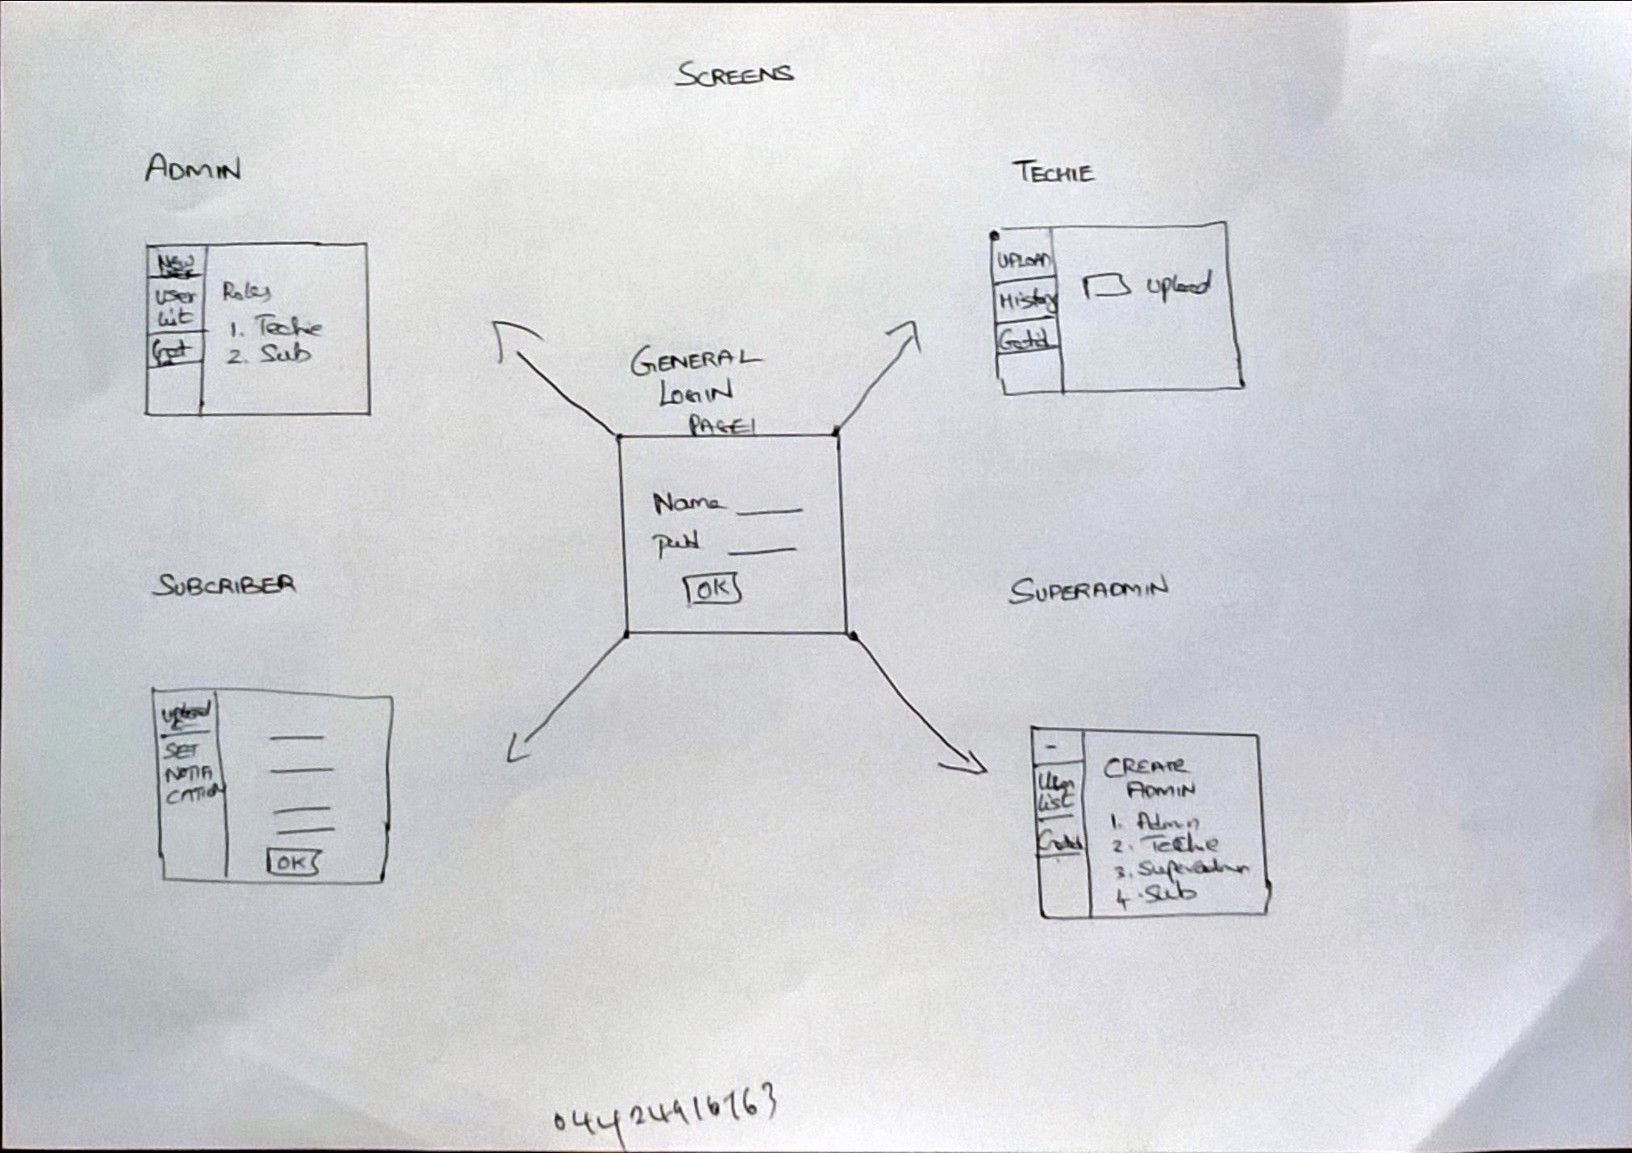 SCREENS
ADMIN
NEW
USER
User
List
Roles
1. Techie
2. Sub
TECHIE
UPLOAD
History
upload
GENERAL
LOGIN
PAGE1
Name
pwd
OK
SUBCRIBER
upload
SET
NOTIFI
CATION
OK
SUPERADMIN
-
User
List
CREATE
ADMIN
1. Admin
2. Techie
3. Superadmin
4. Sub
04424916763